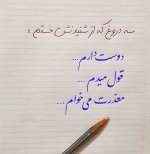 سه دروغ که از شنیدنش خستم؛
دوست دارم ...
قول میدم ...
معذرت می‌خوام ...